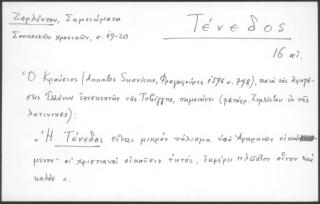 Ζερλέντου, Σημειώματα
Σουηκικῶν χρονικῶν, σ. 19-20
Τένεδος
16 αἰ.
Ὁ Κρούσιος (Annales Suevicus, Φραγκφούρτη 1596 σ. 798), κατὰ τὰς ἀφηγή-
σεις Ἑλλήνων ἐπισκεπτῶν τῆς Τυβίγγης, σημειώνει (μετάφρ. Ζερλέντου ἐκ τῆς
λατινικῆς):
"Ἡ Τένεδος εἶναι μικρὸν πόλισμα ὑπὸ Ἀγαρηνῶν οἰκού-
μενον· οἱ χριστιανοὶ οἰκοῦσιν ἐκτός, ἐκφέρει πλεῖστον οἶνον καὶ
καλόν".